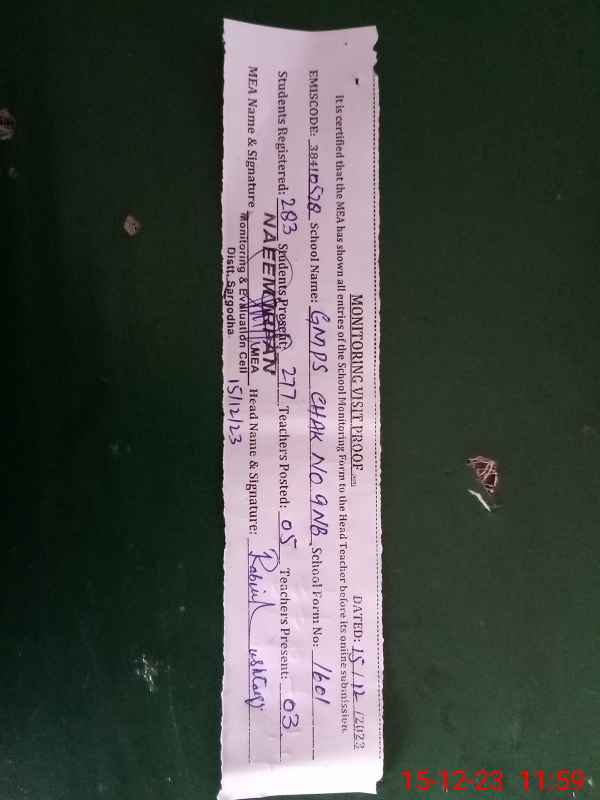 MONITORING VISIT PROOF
DATED: 15/12/2023
It is certified that the MEA has shown all entries of the School Monitoring Form to the Head Teacher before its online submission.
EMISCODE: 38410578 School Name: GMPS CHAK NO 9NB School Form No: 1601
Students Registered: 283 Students Present: 277 Teachers Posted: 05 Teachers Present: 03
NAEEM IRFAN
MEA Name & Signature MEA Head Name & Signature:
Monitoring & Evaluation Cell
Distt. Sargodha
15/12/23
15-12-23 11:59